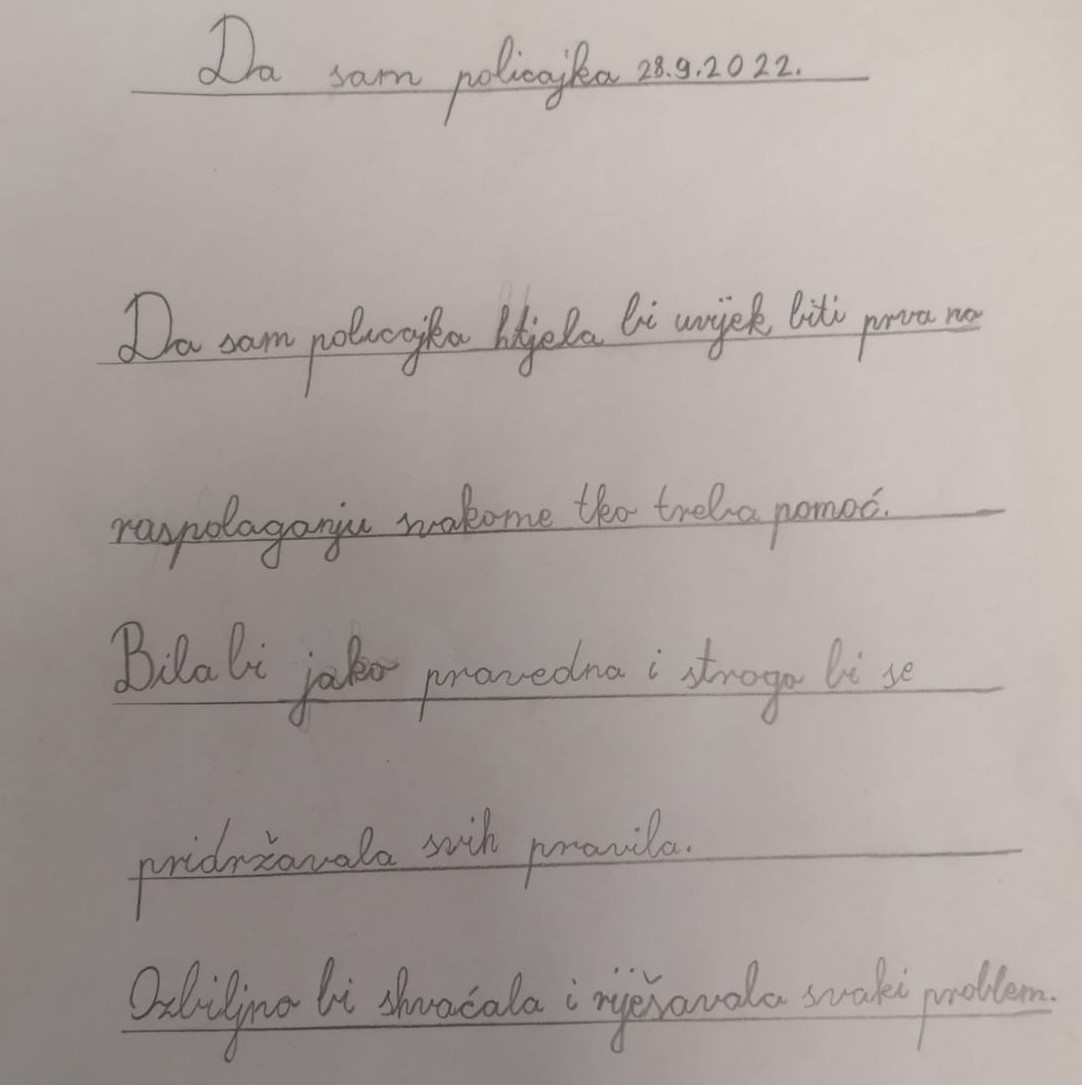 Da sam policajka 28.9.2022.
Da sam policajka htjela bi uvijek biti prva na
raspolaganju svakome tko treba pomoć.
Bila bi jako pravedna i strogo bi se
pridržavala svih pravila.
Ozbiljno bi shvaćala i rješavala svaki problem.